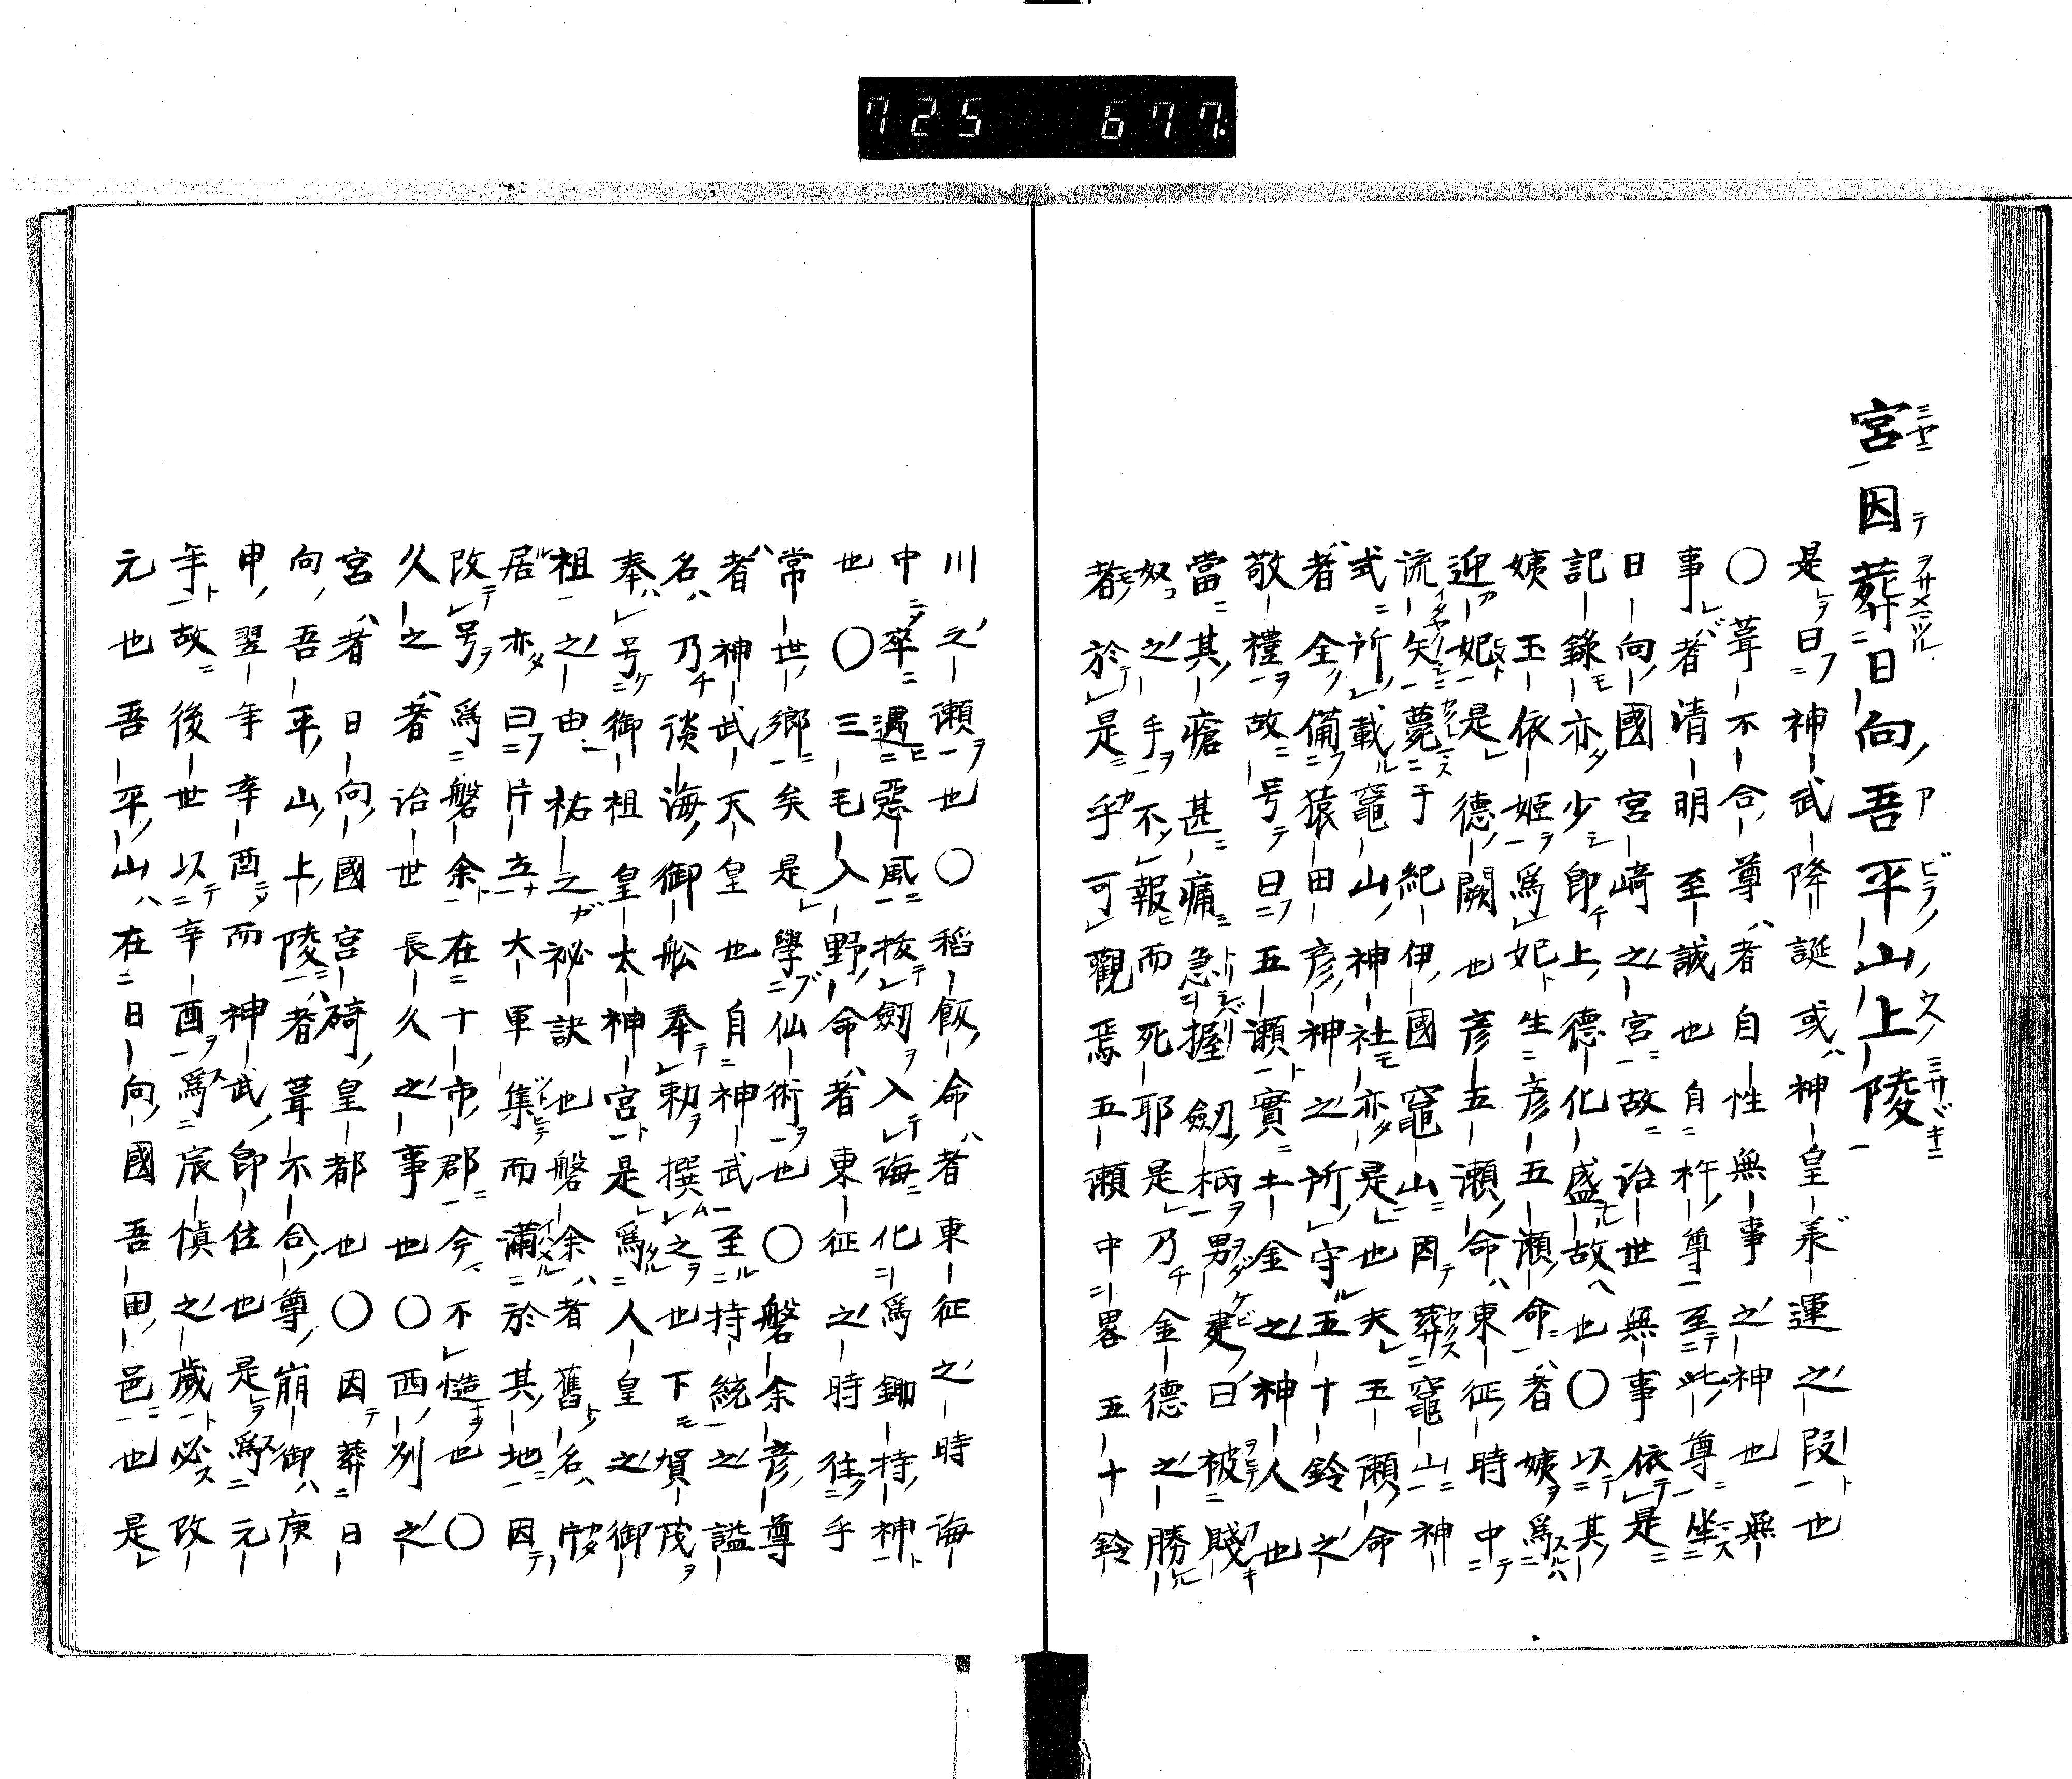 725 677
宮因葬日向吾平山上陵
是曰神武降誕或神皇義運之段也
〇葺不合尊者自性無事之神也無
事者清明至誠也自杵尊至此尊坐
日向國宮﨑之宮故治世無事依是
記錄亦少卽上德化盛故也〇以其
姨玉依姬爲妃生彦五瀬命者姨爲
迎妃是德闕也彦五瀬命東征時中
流矢薨于紀伊國竈山因葬竈山神
式所載竈山神社亦是也夫五瀬命
者全備猿田彦神之所守五十鈴之
敬禮故号曰五瀬實土金之神人也
當其瘡甚痛急握劔柄男建曰被賤
奴之手不報而死耶是乃金德之勝
者於是乎可觀焉五瀬中畧五十鈴
川之瀬也〇稻飯命者東征之時海
中卒遇惡風拔劔入海化爲鋤持神
也〇三毛入野命者東征之時往乎
常世鄉矣是學仙術也〇磐余彦尊
者神武天皇也自神武至持統之謚
名乃談海御舩奉勅撰之也下賀茂
奉号御祖皇太神宮是爲人皇之御
祖之由祐之祕訣也磐余者舊名片
居亦曰片立大軍集而滿於其地因
改号爲磐余在十市郡今不慥也〇
久之者治世長久之事也〇西列之
宮者日向國宮碕皇都也〇因葬日
向吾平山上陵者葺不合尊崩御庚
申翌年辛酉而神武卽位也是爲元
年故後世以辛酉爲宸愼之歲必改
元也吾平山在日向國吾田邑也是